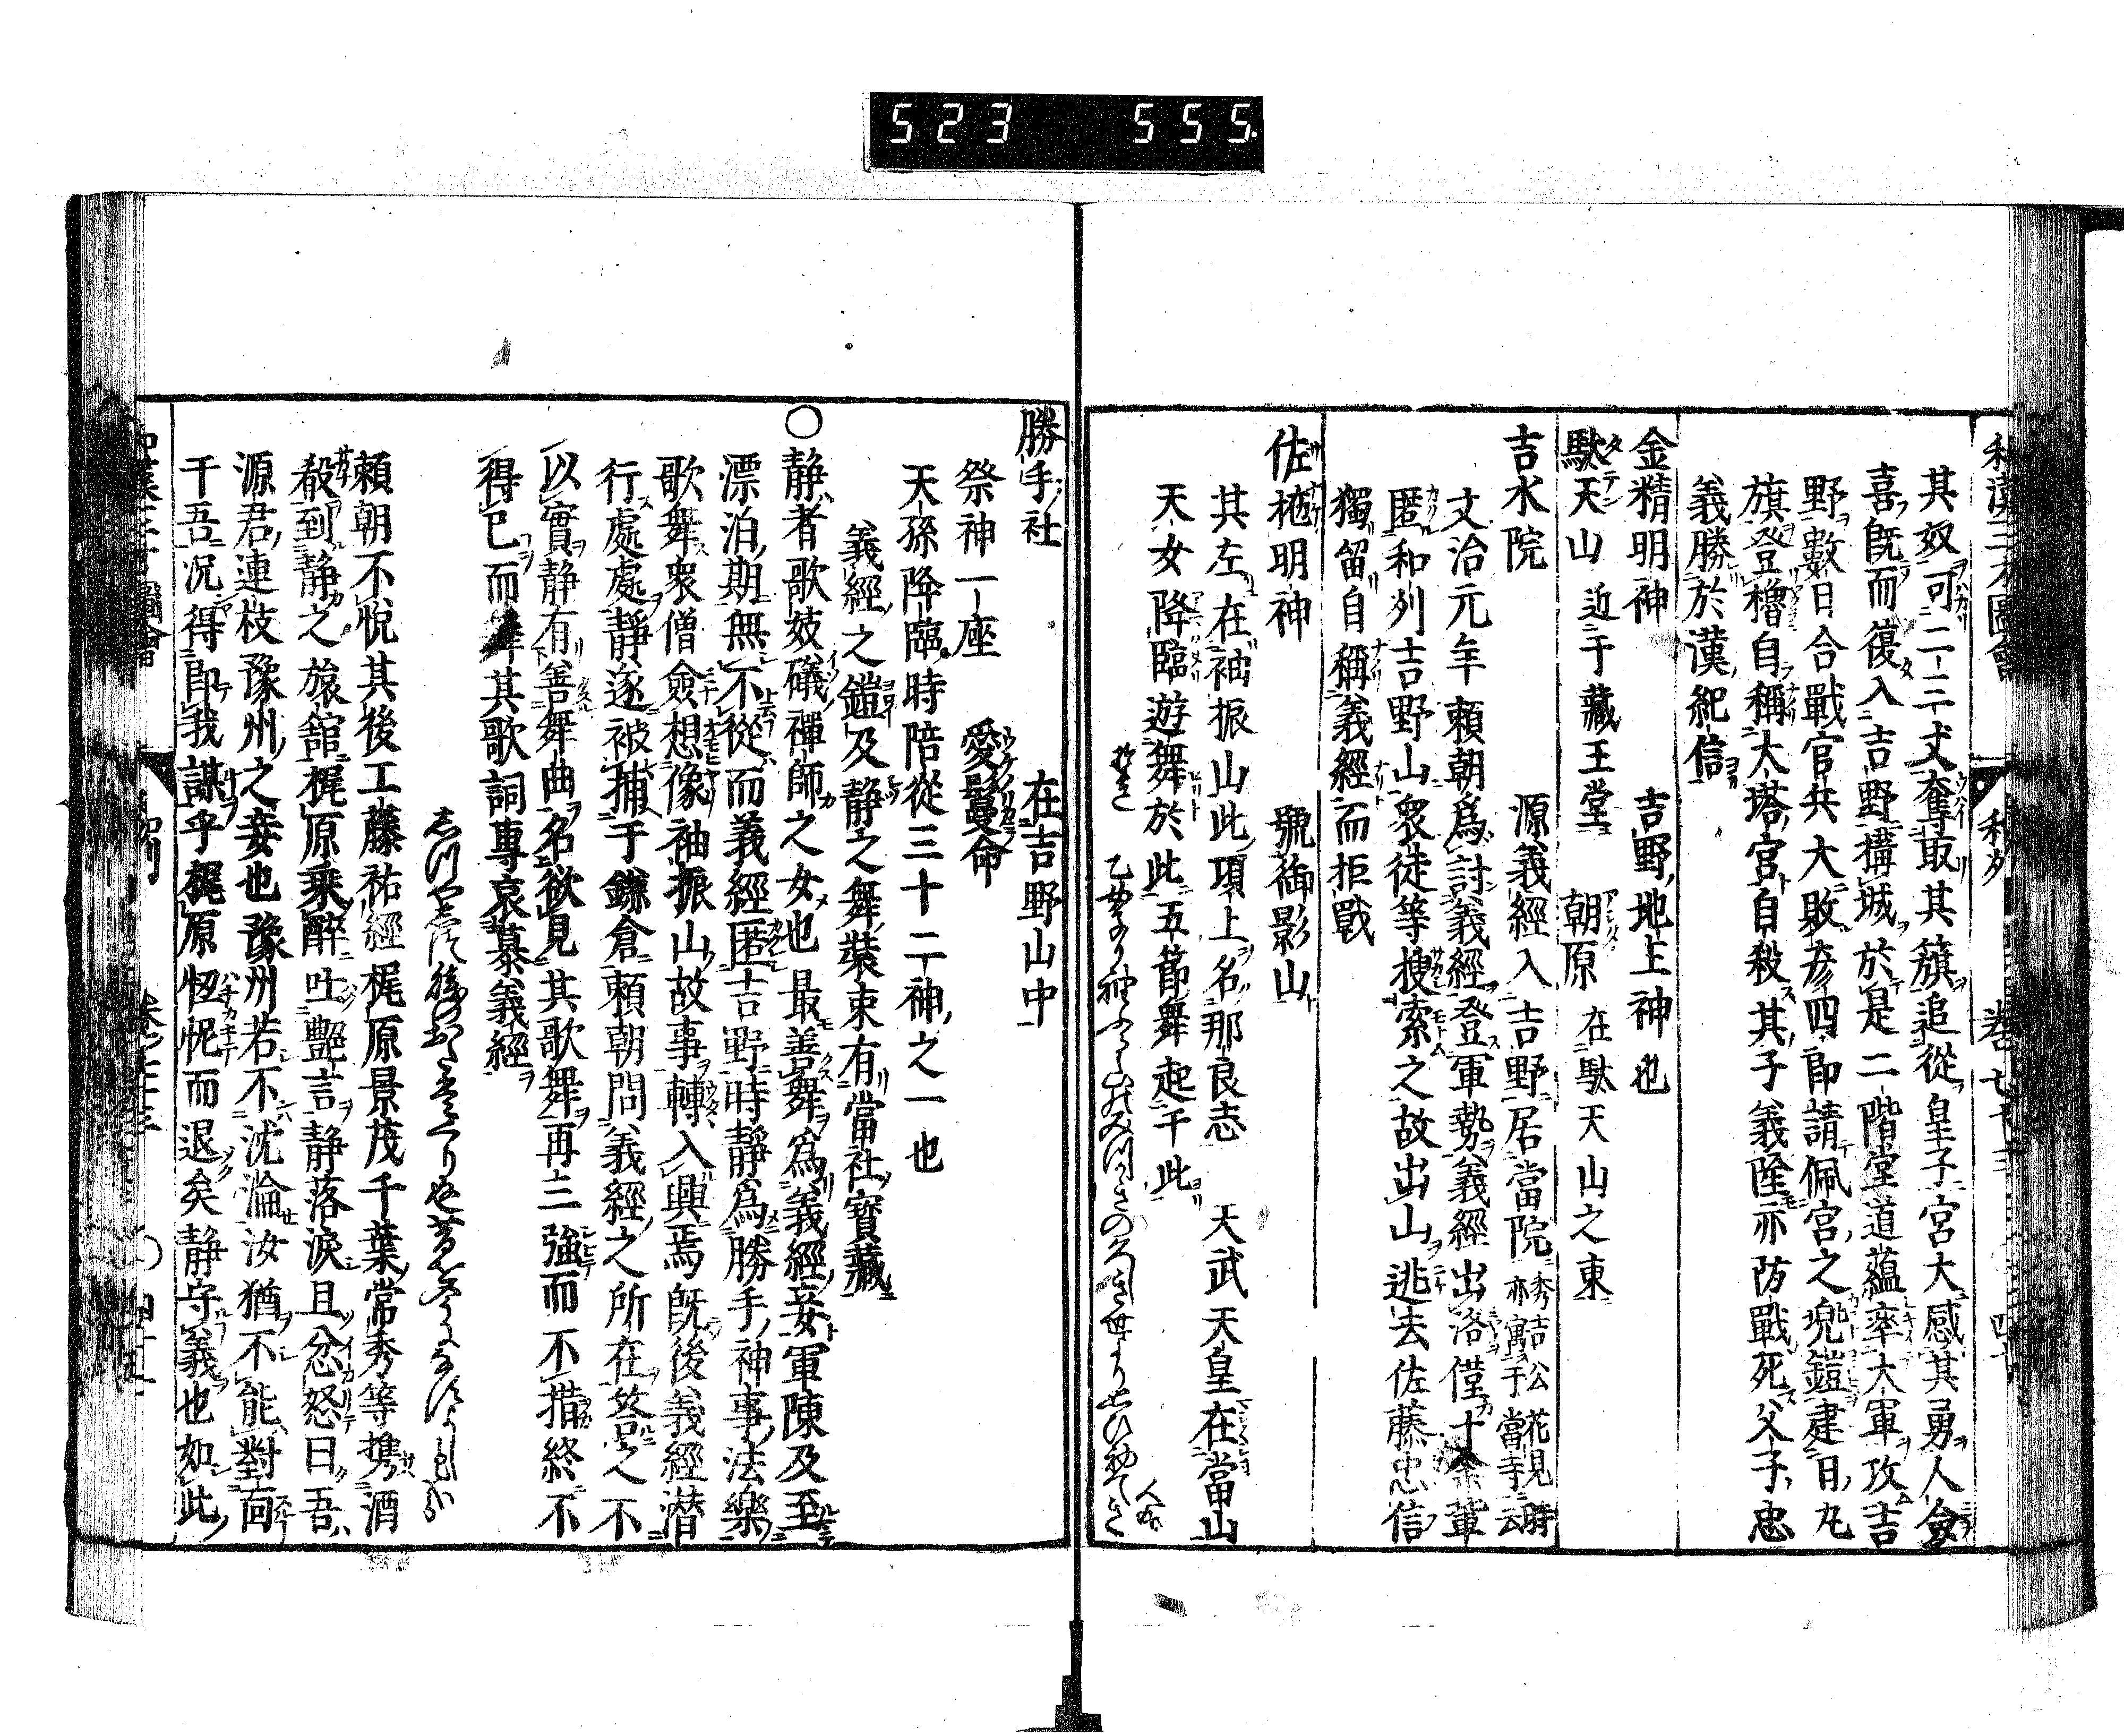 523 555.
和漢三才圖會 和列 卷七十三
其奴可二三丈奪取其籏追從皇子宮大感其勇人僉
喜既而復入吉野構城於是二階堂道蘊率大軍攻吉
野數日合戰官兵大敗彦四郎請佩宮之兜鎧建日丸
旗登櫓自稱大塔宮自殺其子義隆亦防戰死父子忠
義勝於漢紀信
金精明神 吉野地主神也
馱天山 近于藏王堂 朝原 在馱天山之東
吉水院 源義經入吉野居當院 秀吉公花見時亦寓于當寺云
文治元年賴朝爲討義經登軍勢義經出洛僅十余輩
匿和列吉野山衆徒等搜索之故出山逃去佐藤忠信
獨留自稱義經而拒戰
佐拋明神 號御影山
其左在袖振山此項上名那良志 天武天皇在當山
天女降臨遊舞於此五節舞起于此
勝手社 在吉野山中
祭神一座 愛鬘命
天孫降臨時陪從三十二神之一也
義經之鎧及靜之舞裝束有當社寶藏
○静者歌妓礒禪師之女也最善舞爲義經妾軍陳及至
漂泊期無不從而義經匿吉野時靜爲勝手神事法樂
歌舞衆僧僉想像袖振山故事轉入興焉既後義經潜
行處處靜遂被捕于鎌倉賴朝問義經之所在答之不
以實静有善舞曲名欲見其歌舞再三強而不措終不
得已而舞其歌詞專哀慕義經
賴朝不悅其後工藤祐經梶原景茂千葉常秀等携酒
殽到静之旅舘梶原乗醉吐艶言静落淚且忿怒曰吾
源君連枝豫州之妾也豫州若不沈淪汝猶不能對面
于吾况得郎我謀乎梶原忸怩而退矣静守義也如此